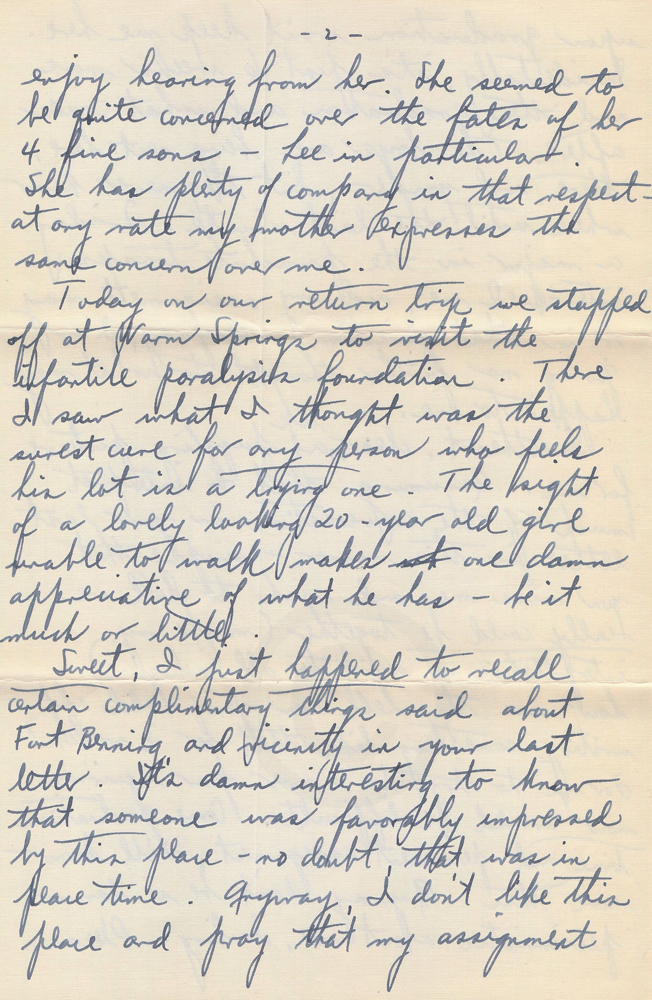 - 2 -
enjoy hearing from her. She seemed to
be quite concerned over the fates of her
4 fine sons - Lee in particular.
She has plenty of company in that respect-
at any rate my mother expresses the
same concern over me.
Today on our return trip we stopped
off at Warm Springs to visit the
infantile paralysis foundation. There
I saw what I thought was the
surest cure for any person who feels
his lot is a trying one. The sight
of a lovely looking 20-year old girl
unable to walk makes one damn
appreciative of what he has - be it
much or little.
Sweet, I just happened to recall
certain complimentary things said about
Fort Benning and vicinity in your last
letter. It's damn interesting to know
that someone was favorably impressed
by this place - no doubt, that was in
peace time. Anyway, I don't like this
place and pray that my assignment